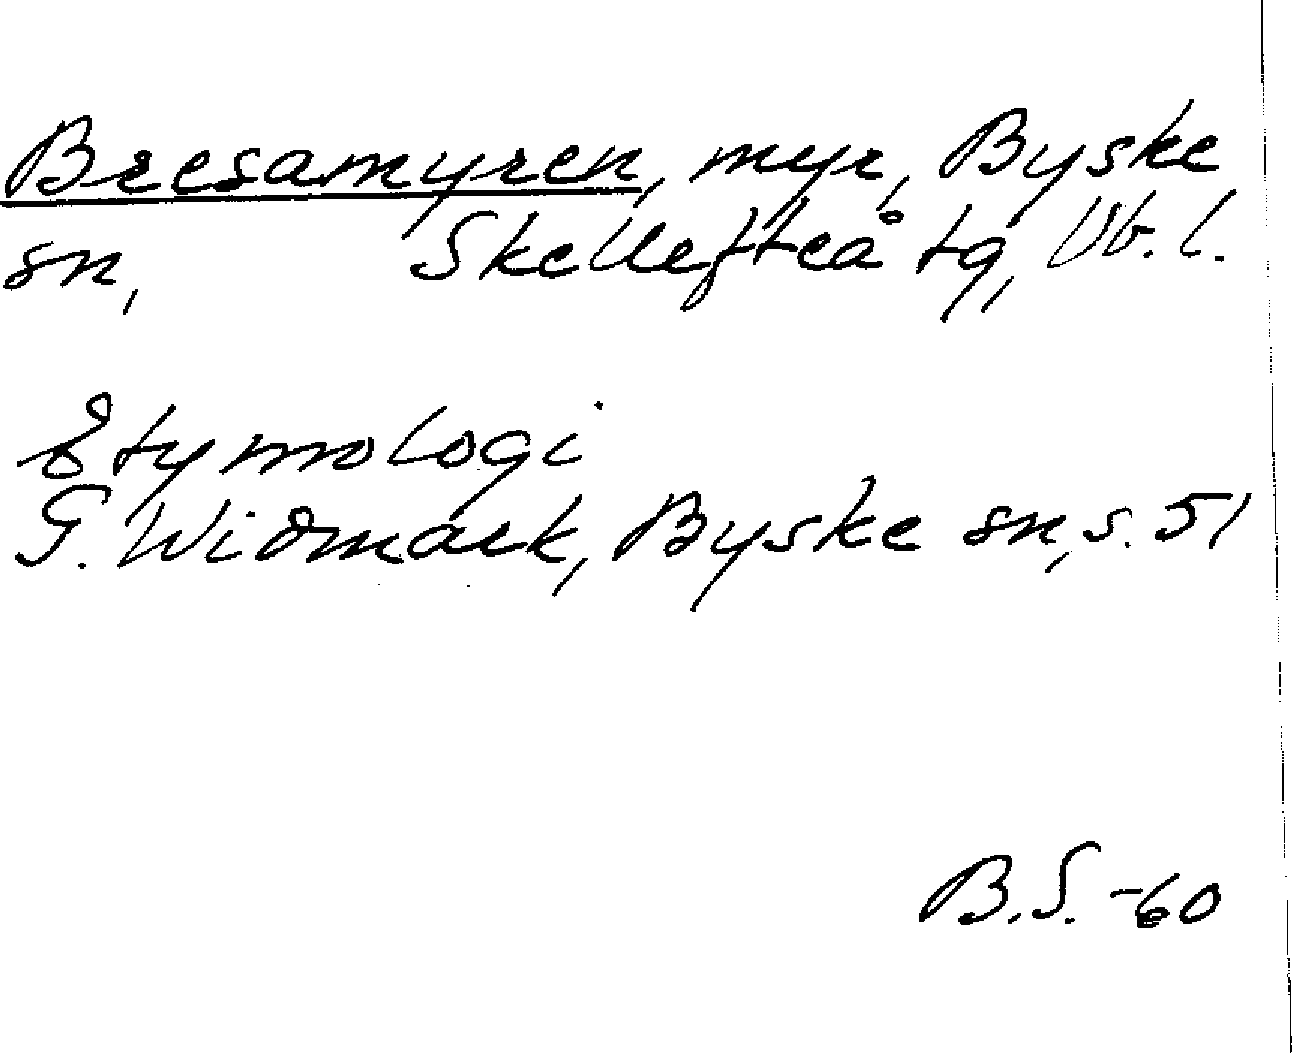 Bresamyren, myr, Byske
sn, Skellefteå tg, Vb. l.
Etymologi
G. Widmark, Byske sn, s. 51
B.S. -60